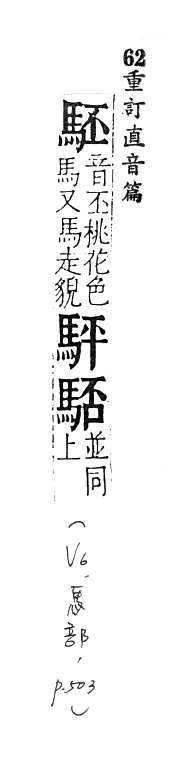 62重訂直音篇
駓
音丕桃花色
馬又馬走貌
駍
並同
上
(V6, 馬部, p.503)